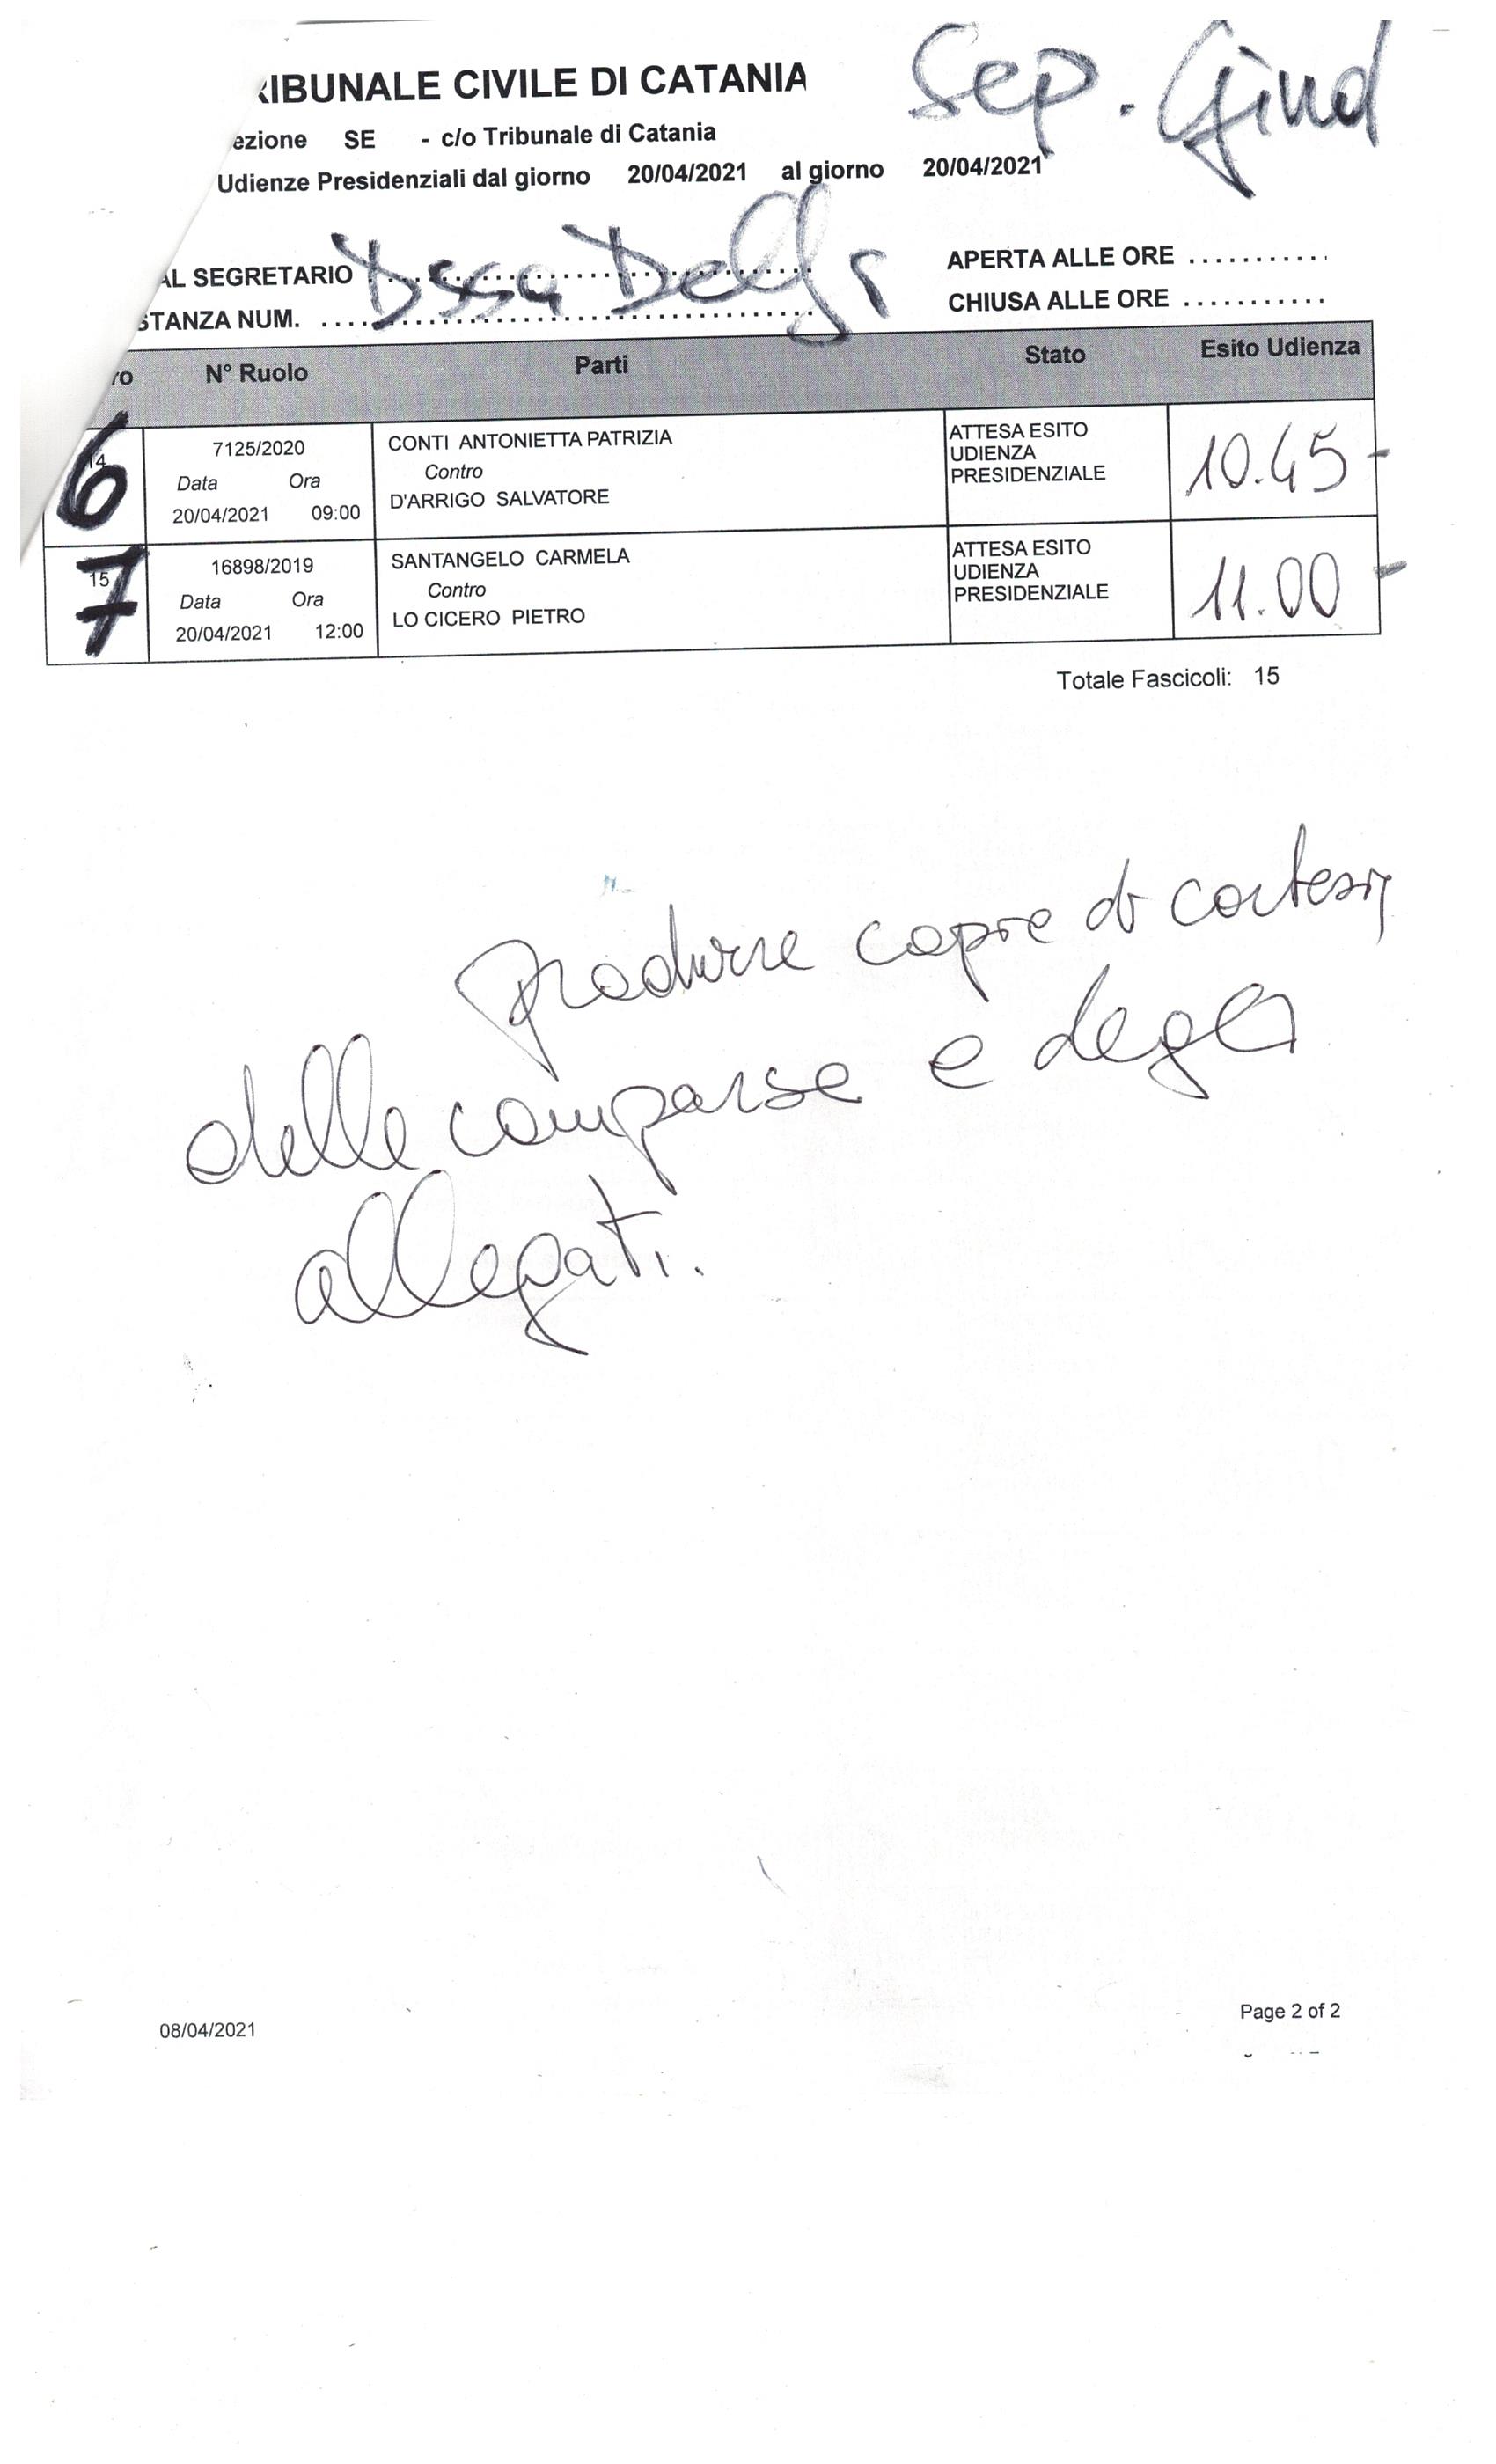 RIBUNALE CIVILE DI CATANIA
Sep. Giud
ezione SE - c/o Tribunale di Catania
Udienze Presidenziali dal giorno 20/04/2021 al giorno 20/04/2021
AL SEGRETARIO Dssa
APERTA ALLE ORE ...........
STANZA NUM. ...........
CHIUSA ALLE ORE ...........
ro N° Ruolo Parti Stato Esito Udienza
6
14
7125/2020
Data Ora
20/04/2021 09:00
CONTI ANTONIETTA PATRIZIA
Contro
D'ARRIGO SALVATORE
ATTESA ESITO
UDIENZA
PRESIDENZIALE
10.45-
7
15
16898/2019
Data Ora
20/04/2021 12:00
SANTANGELO CARMELA
Contro
LO CICERO PIETRO
ATTESA ESITO
UDIENZA
PRESIDENZIALE
11.00-
Totale Fascicoli: 15
produrre copie di cortesia
delle comparse e degli
allegati.
08/04/2021
Page 2 of 2